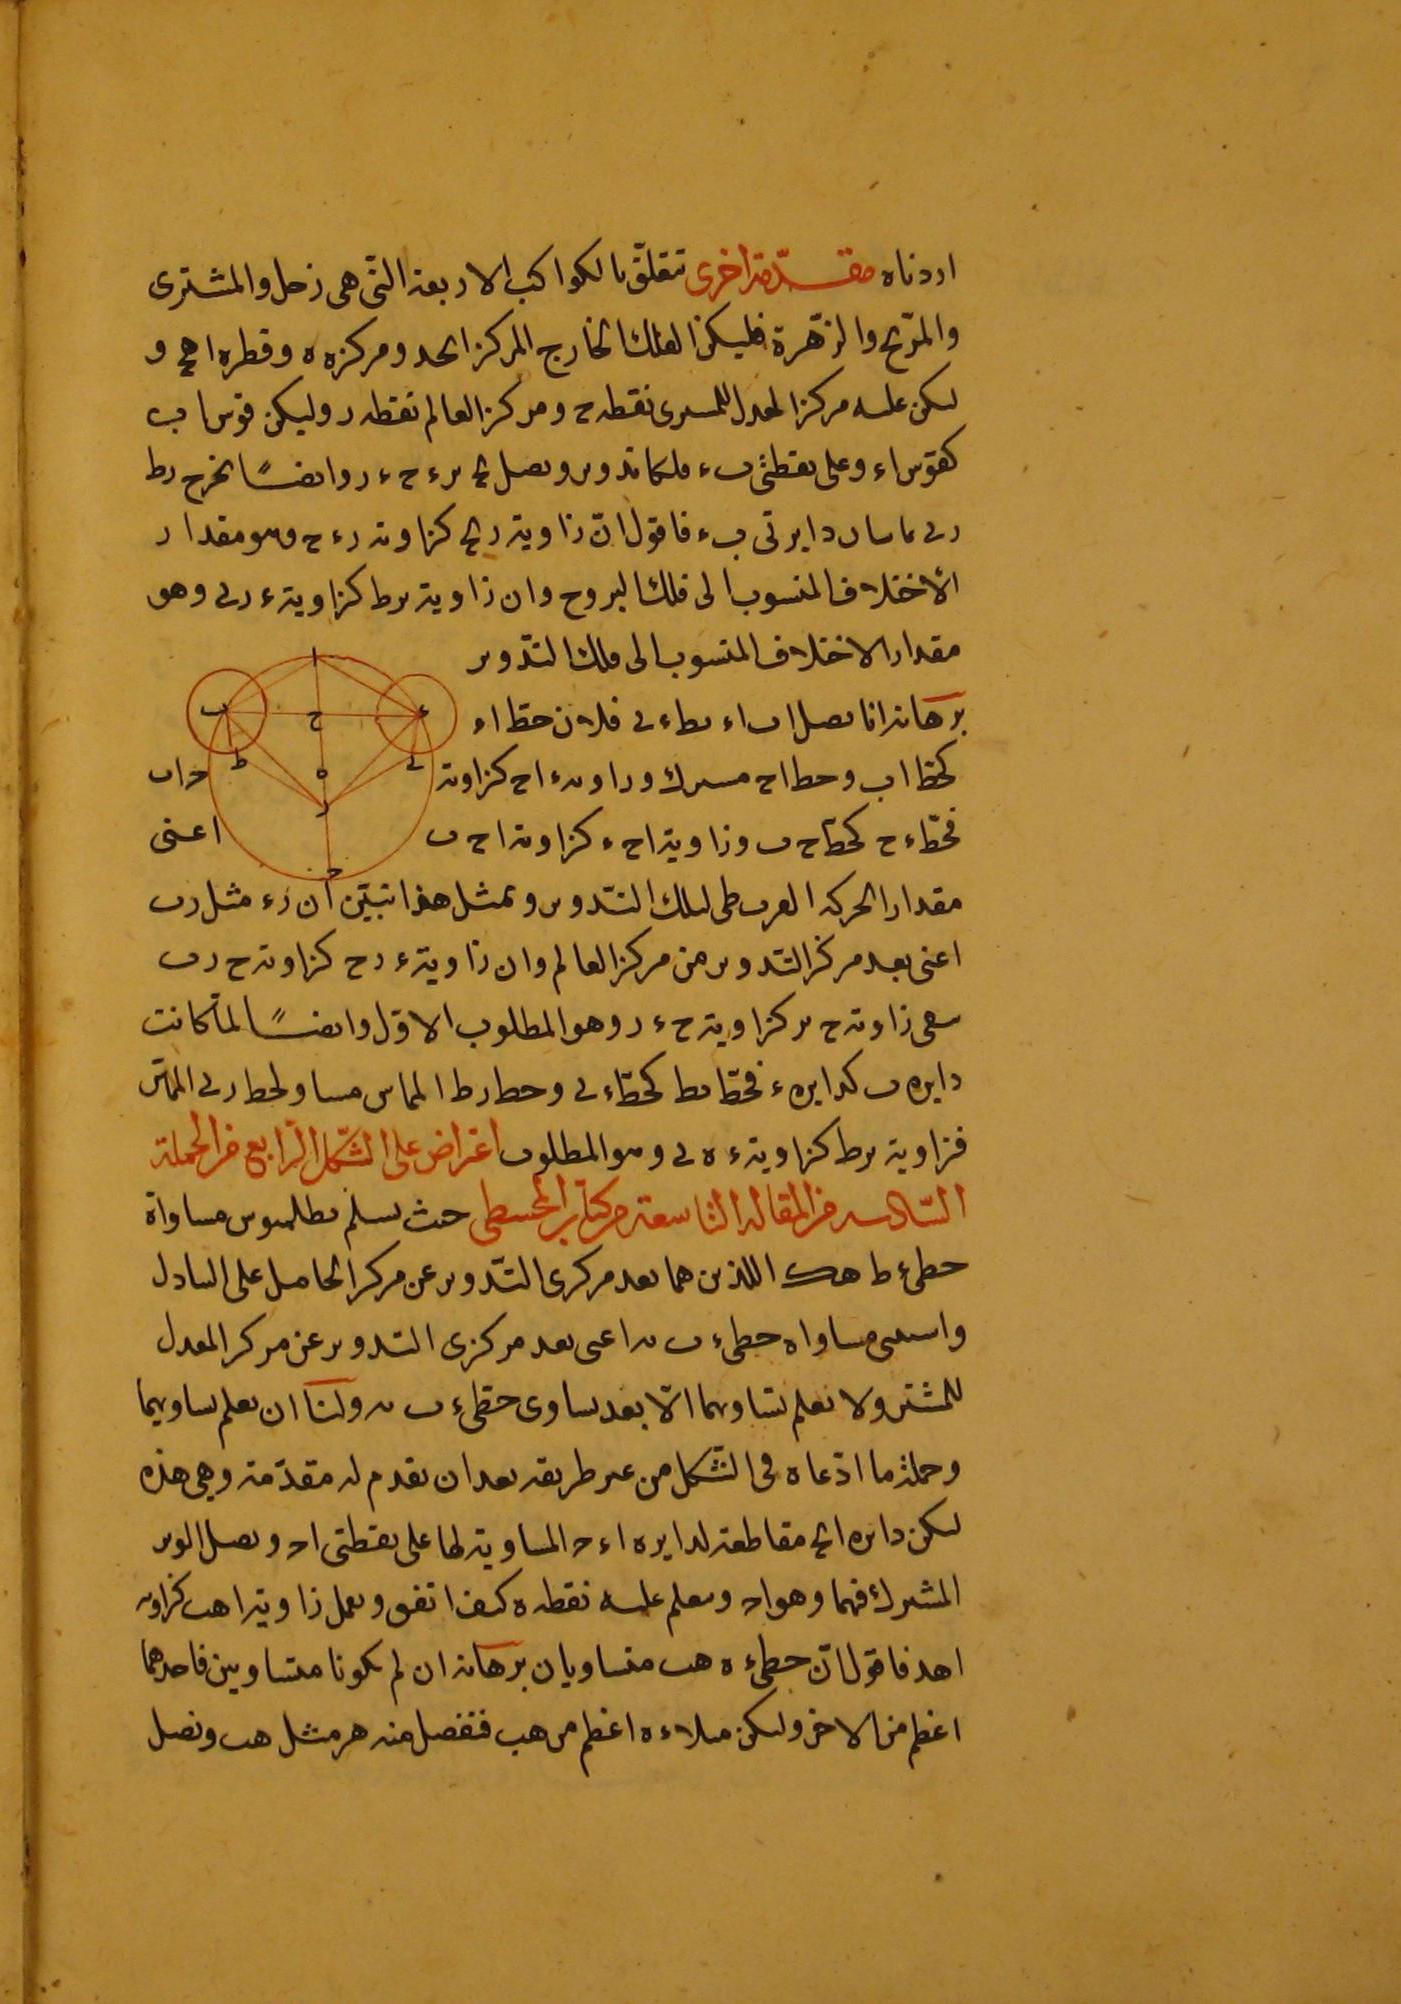 اردناه مقدّمة اخرى تتعلّق بالكواكب الاربعة التى هى زحل والمشترى
والمريخ والزهرة فليكن الفلك الخارج المركز ابجد ومركزه ه وقطره اهج و
ليكن عليه مركز المعدل للمسير نقطه ح ومركز العالم نقطه ر وليكن قوس اب
كقوس اء وعلى نقطتى ب ء فلكا تدوير ونصل حب بر ء ح ء ر وايضًا نخرج رط
رى يماسان دايرتى ب ء فاقول انّ زاوية ربح كزاوية رءح وهو مقدار
الاختلاف المنسوب الى فلك البروج وان زاوية برط كزاوية ءرى وهو
مقدار الاختلاف المنسوب الى فلك التدوير
برهانه انا نصل اب اء بط ءى فلان خط اء
كخط اب وخط اح مشترك وزاوية ءاح كزاوية حاب
فخط ءح كخط حب وزاوية اح ء كزاوية اح ب اعنى
مقدار الحركة لفلك التدوير وبمثل هذا تبيّن ان رء مثل رب
اعنى بعد مركز التدوير من مركز العالم وان زاوية ءرح كزاوية حرب
زاوية ح بر كزاوية ح ء ر وهو المطلوب الاوّل وايضًا لما كانت
دايره ب كدايره ء فخط بط كخط ءى وخط رط المماس مساو لخط رى المماس
فزاوية برط كزاوية ء ه ى وهو المطلوب اعتراض على الشكل الرابع من الجملة
السّادسه من المقاله التاسعة من كتاب المجسطى حيث تسلم بطلميوس مساواة
خطى ءط هك اللذين هما بعد مركزى التدوير عن مركز الحامل على التبادل
مساواه خطى ء ب به اعنى بعد مركزى التدوير عن مركز المعدل
للمسير ولا نعلم تساويهما الا بعد تساوى خطى ء ب به ولنا ان نعلم تساويهما
وجملة ما ادّعاه فى الشكل من غير طريقه بعد ان نقدم له مقدّمة وهى هذه
ليكن دايره ابج مقاطعة لدايره اءج المساوية لها على نقطتى اج ونصل الوتر
المشترك فيهما وهو اج ونعلم عليه نقطه ه كيف اتفق ونعمل زاوية اهب كزاوية
اهد فاقول انّ خطى ءه هب متساويان برهانه ان لم يكونا متساويين فاحدهما
اعظم من الاخر وليكن مثلا ءه اعظم من هب فنفصل منه هر مثل هب ونصل